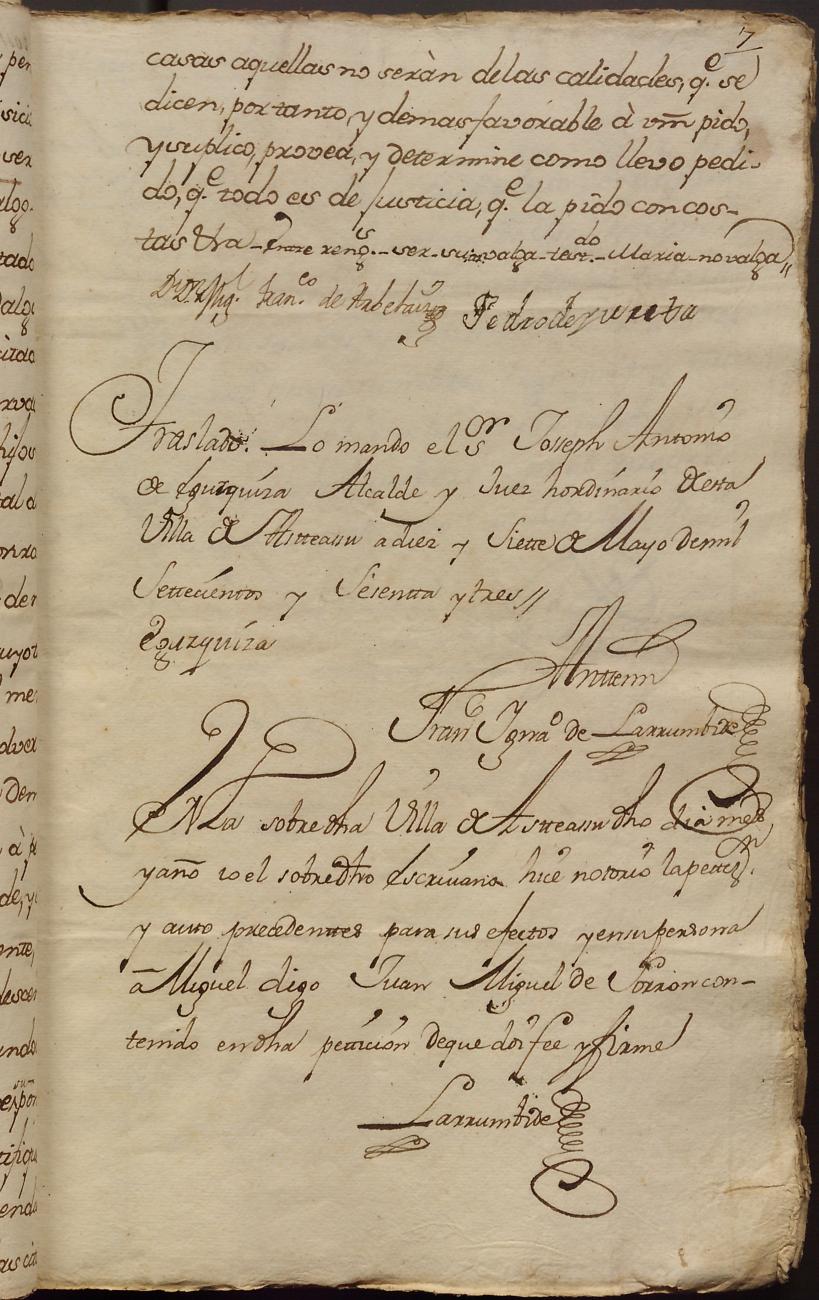 7
casas aquellas no seràn delas calidades, q.e se
dicen, por tanto, y demas favorable à vm̃ pido,
y suplico, provea, y determine como llevo pedi-
do, q.e todo es de Justicia, q.e la pido con cos-
tas &ra - Entre reng.s - ser - su - valga - test.do - Maria - no valga //
Fran.co de Pedro de Yurreta
Traslado: Lo mando el s.or Josseph Antonio
de Eguzquiza Alcalde y Juez hordinario desta
Villa de Astteasu a diez y Siette de Mayo de mil
Settecientos y Sesentta y tres //
Eguzquiza
Anttemi
Fran.co Igna.o de Larrumbide
En la sobredha Villa de Astteasu dho dia mes
y año io el sobredho Escrivano hice notorio la petiz.n
y auto precedenttes para sus efectos y en su persona
a Miguel digo Juan Miguel de Sorron con-
tenido en dha petticion de que doi fee y firme
Larrumbide